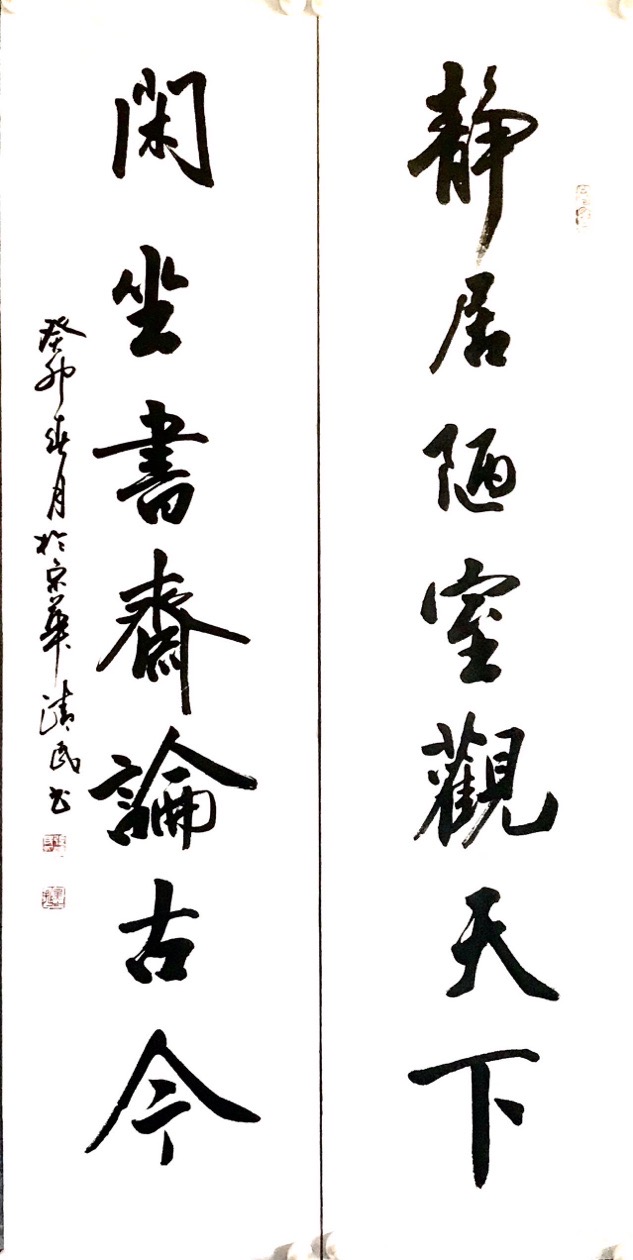 靜居陋室觀天下
閑坐書齋論古今
癸卯春月於京華清民书